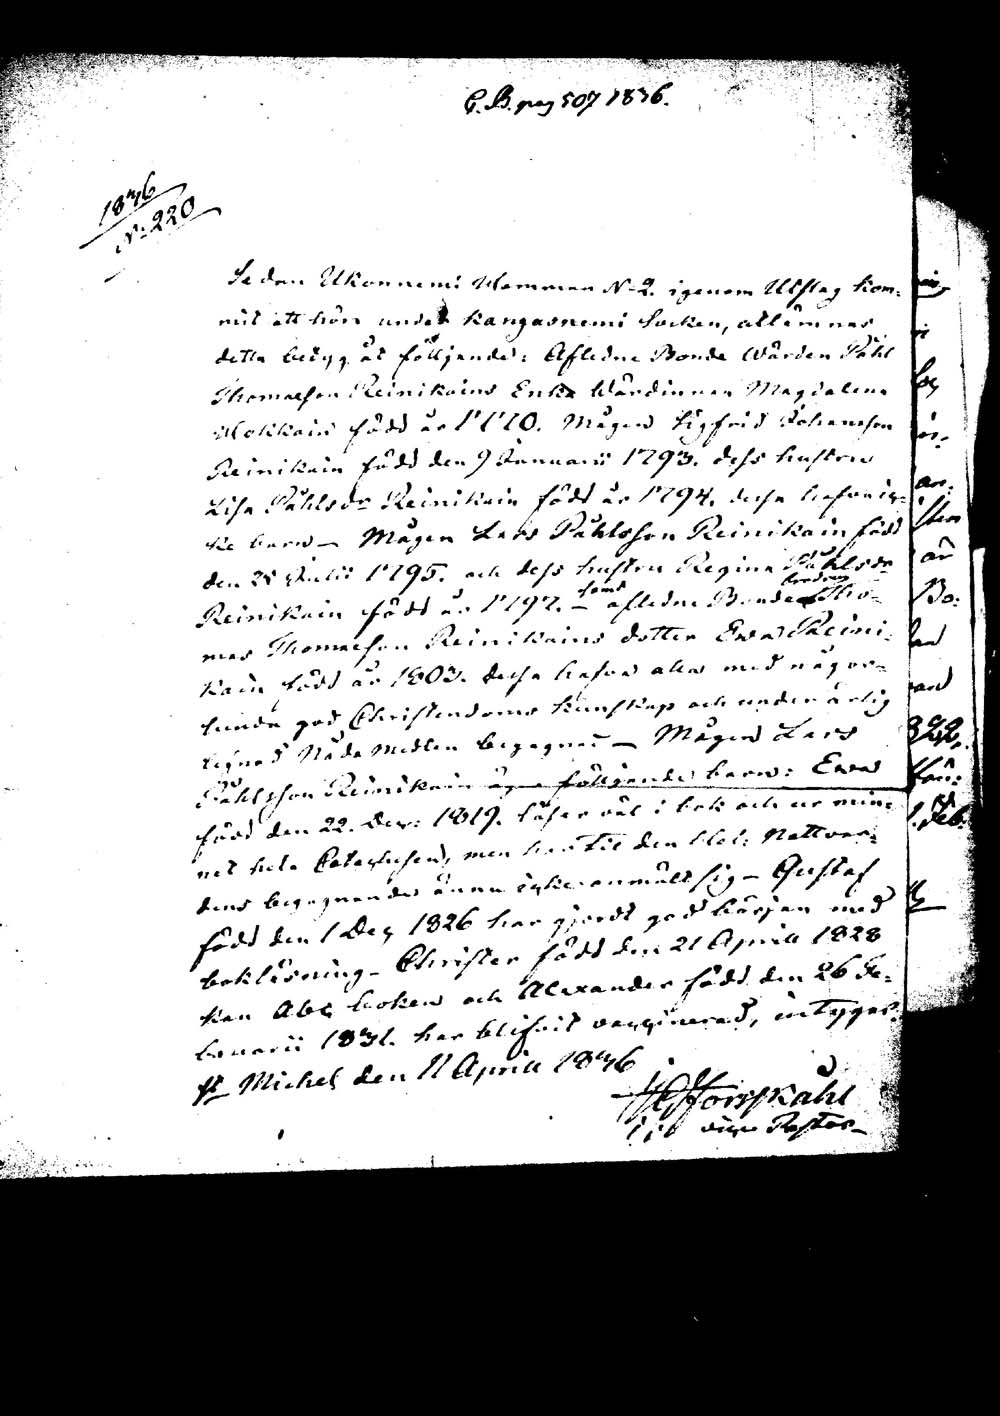 C. B. pag 507 1836.
1836
No 220
Sedan Ukonnemi Hemman No 2. igenom Utslag kom-
mit att höra under Kangasnemi Socken, så lämnas
detta betyg åt följande: Afledne Bonde Wärden Påhl
Thomasson Reinikains Enka Wärdinnan Magdalena
Hokkain född år 1770. Mågen Sigfrid Johansson
Reinikain född den 9 Januarii 1793. dess hustru
Lisa Påhlsdr Reinikain född år 1794. dessa hafva ic-
ke barn — Mågen Lars Påhlsson Reinikain född
den 28 Julii 1795. och dess hustru Regina Påhlsdr
Reinikain född år 1797. — samt afledne Bonde brodren Tho-
mas Thomasson Reinikains dotter Ewa Reini-
kain född år 1803. dessa hafva alla med någor-
lunda god Christendoms kunskap och underårlig
Nådamedlen begagnat — Mågen Lars
Påhlsson Reinikain äga följande barn: Ewa
född den 22. Dec: 1819. läser väl i bok och ur min-
net hela Catechesen, men har til den H. Nattvar-
dens begagnande ännu icke anmält sig — Gustaf
född den 1 Dec 1826 har gjordt god början med
bokläsning — Christer född den 21 Aprill 1828
kan Abc boken och Alexander född den 26 Fe-
bruarii 1831. har blifvit vaccinerad, intygar.
St Michel den 11 Aprill 1836
Forsskåhl
vice Pastor